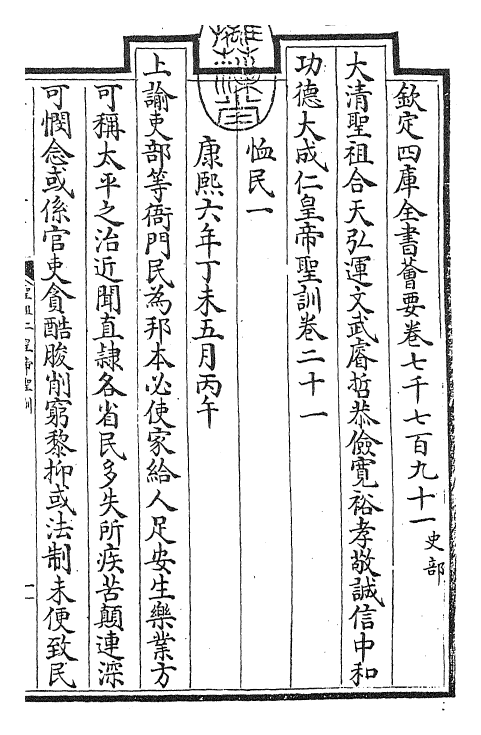 欽定四庫全書薈要卷七千七百九十一史部
大清聖祖合天弘運文武睿哲恭儉寬裕孝敬誠信中和
功德大成仁皇帝聖訓卷二十一
恤民一
康熙六年丁未五月丙午
上諭吏部等衙門民為邦本必使家給人足安生樂業方
可稱太平之治近聞直隷各省民多失所疾苦顛連深
可憫念或係官吏貪酷朘削窮黎抑或法制未便致民